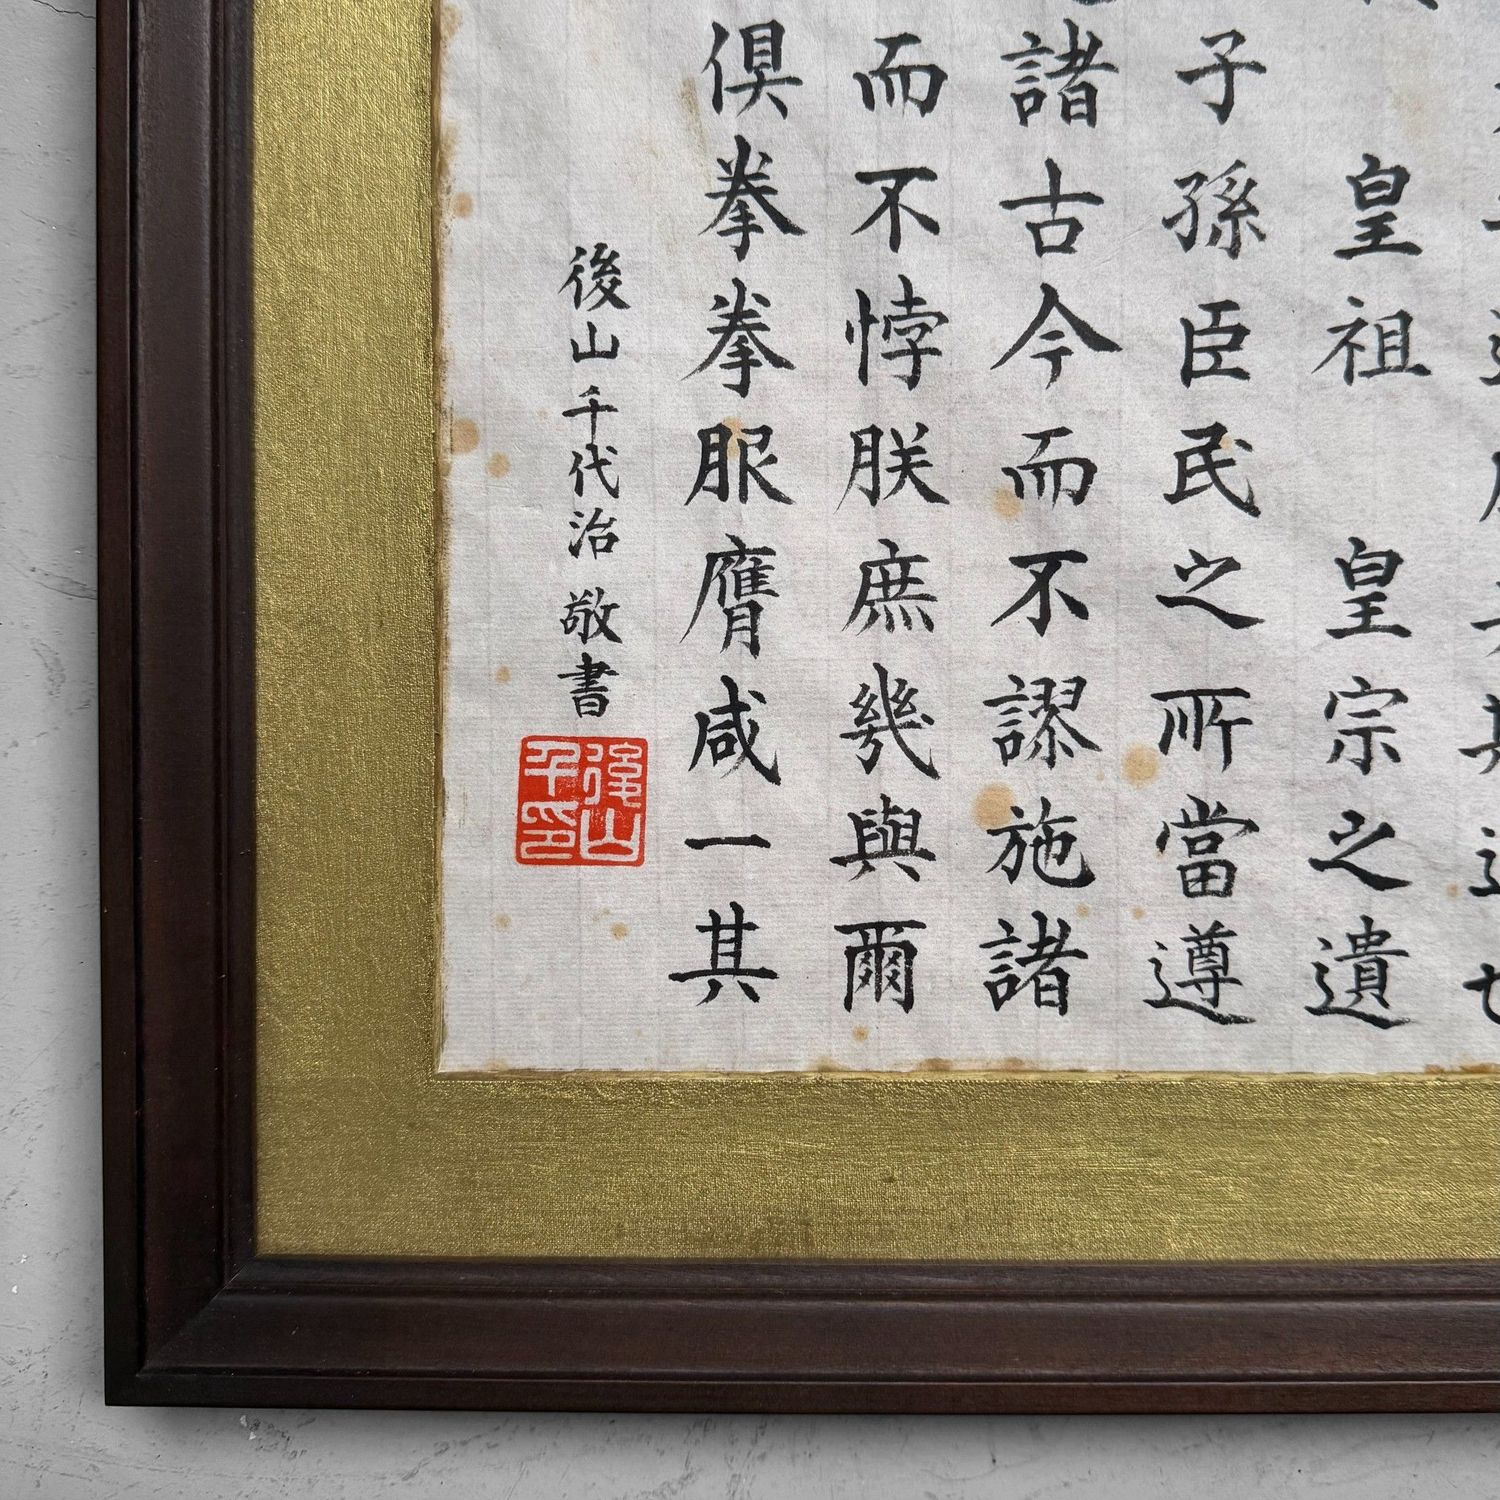 皇祖 皇宗之遺
子孫臣民之所當遵
諸古今而不謬施諸
而不悖朕庶幾與爾
俱拳拳服膺咸一其
後山千代治 敬書
後山
千印